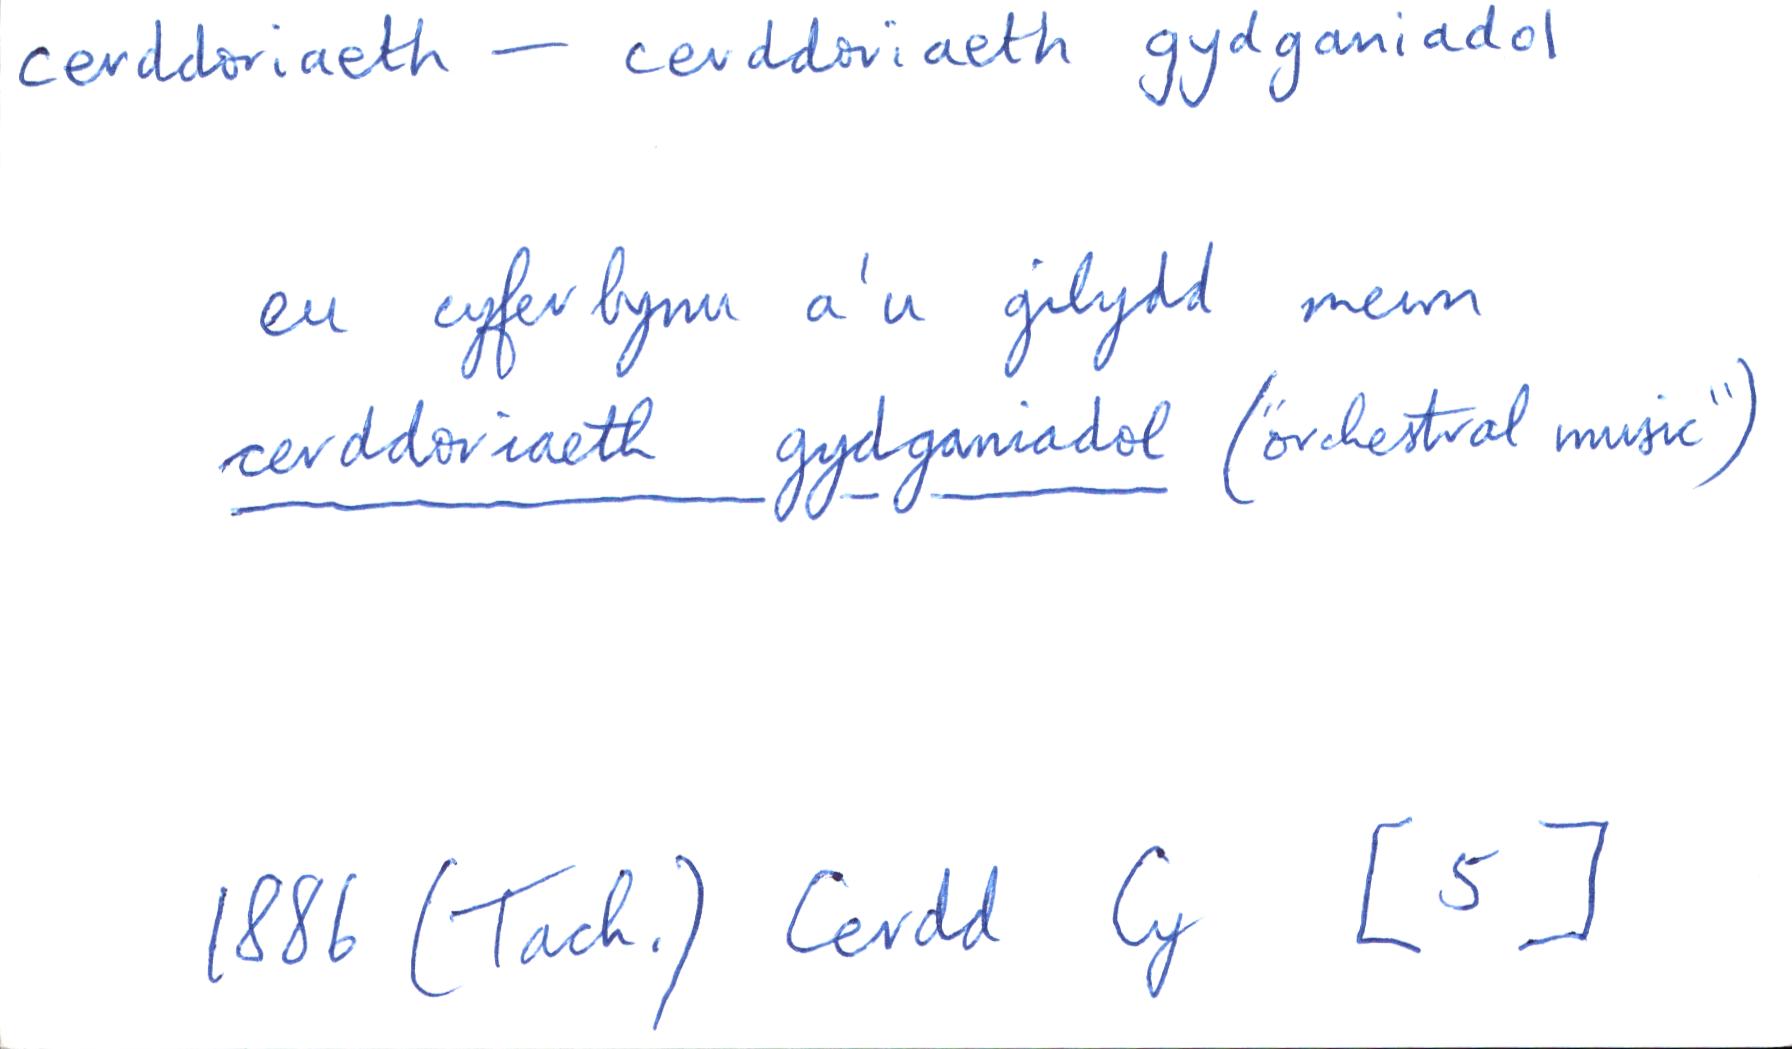 cerddoriaeth — cerddoriaeth gydganiadol
eu cyferbynu a'u gilydd mewn
cerddoriaeth gydganiadol ("orchestral music")
1886 (Tach.) Cerdd Cy [5]